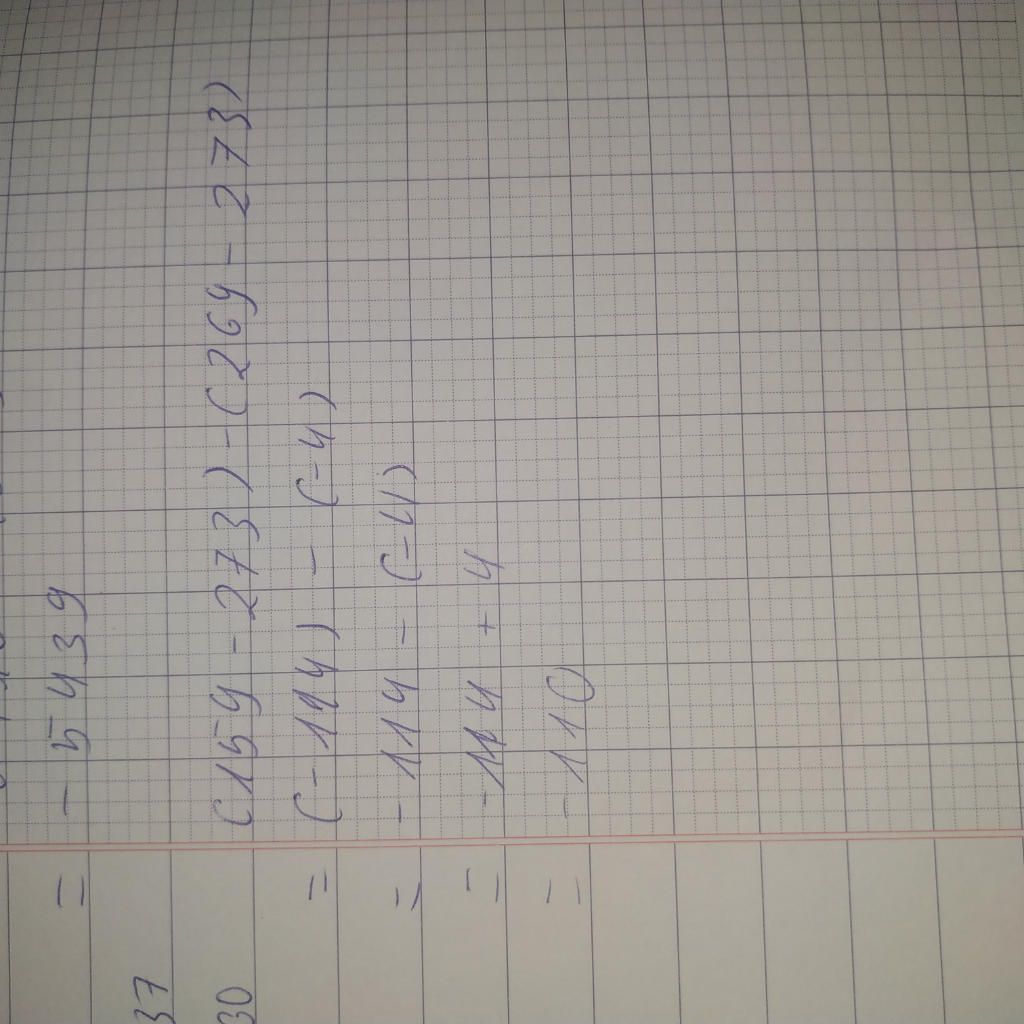 = - 5439
37
30 (159 - 273) - (269 - 273)
= (- 114) - (-4)
= - 114 - (-4)
= -114 + 4
= - 110